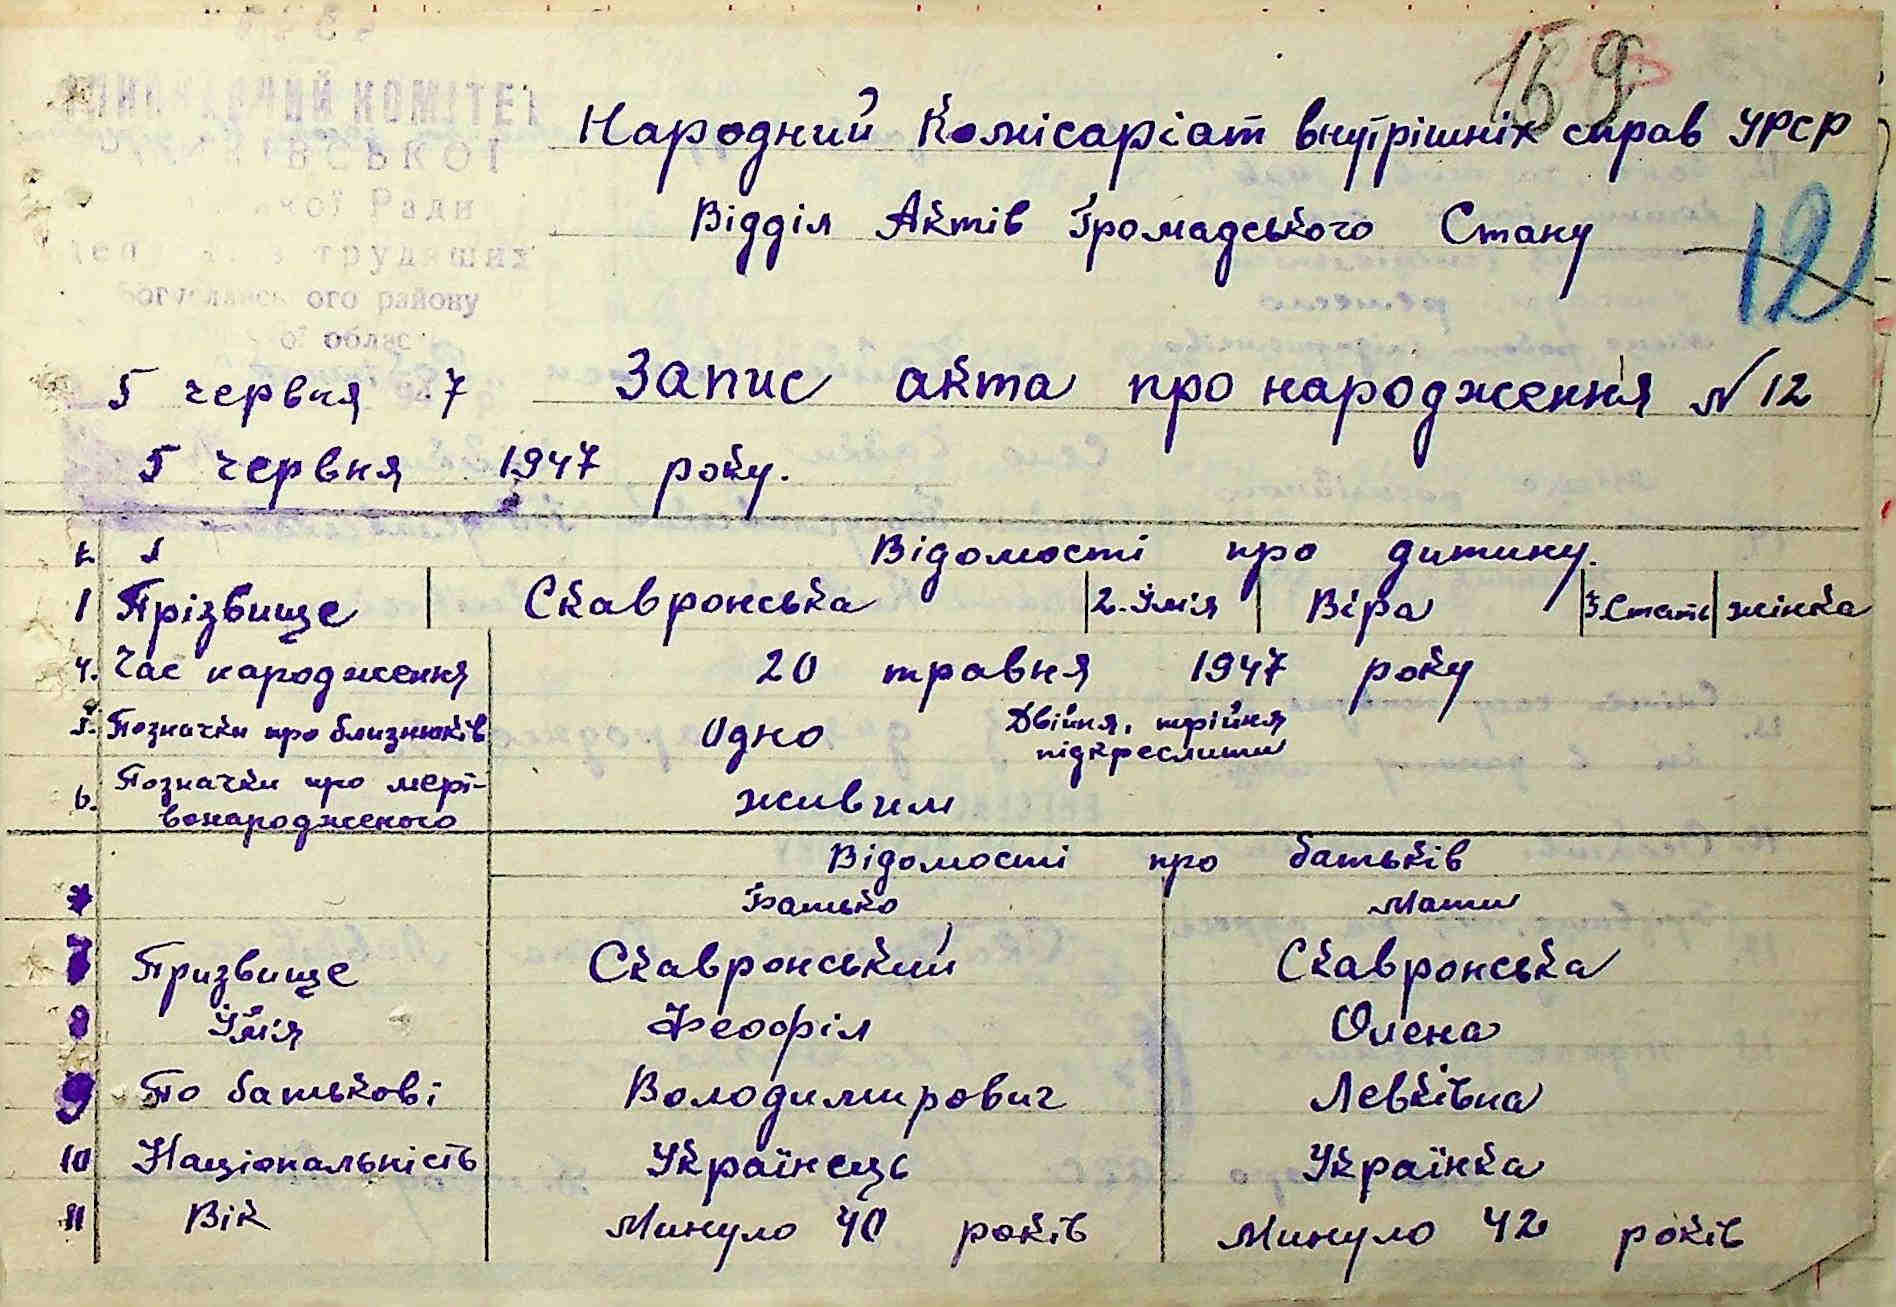 169
КОМІТЕТ
Народний Комісаріат внутрішніх справ УРСР
Ради
Відділ Актів Громадського Стану
12
трудящих
ого району
облас
5 червня 7 Запис акта про народження №12
5 червня 1947 року.
Відомості про дитину.
1 Прізвище Скавронська 2. Імія Віра 3. Стать жінка
4. Час народження 20 травня 1947 року
5. Позначки про близнюків Одно Двійня, трійня
підкреслити
6. Позначки про мерт-
вонародженого живим
Відомості про батьків
Батько Мати
7 Призвище Скавронський Скавронська
8 Імія Феофіл Олена
9 По батькові Володимирович Левківна
10 Національність Українець Українка
11 Вік Минуло 40 років Минуло 42 років